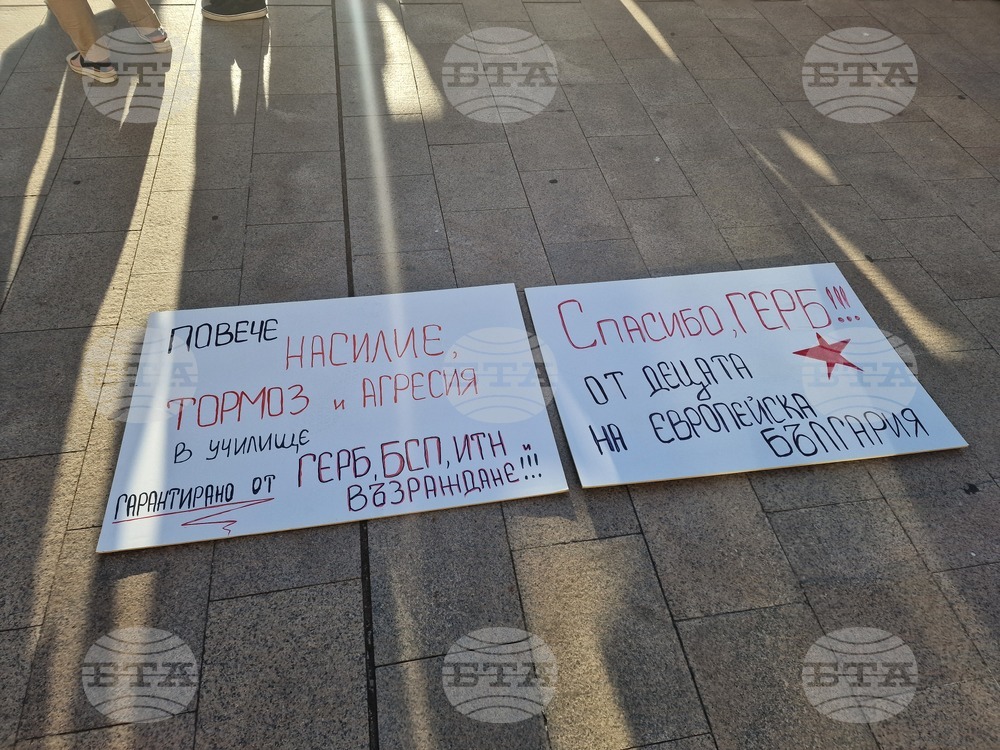 ПОВЕЧЕ НАСИЛИЕ,
ТОРМОЗ и АГРЕСИЯ
В УЧИЛИЩЕ
ГАРАНТИРАНО ОТ ГЕРБ, БСП, ИТН
ВЪЗРАЖДАНЕ!!!
СПАСИБО, ГЕРБ!!!
ОТ ДЕЦАТА
НА ЕВРОПЕЙСКА
БЪЛГАРИЯ
БТА
БТА
БТА
БТА
БТА
БТА
БТА
БТА
БТА